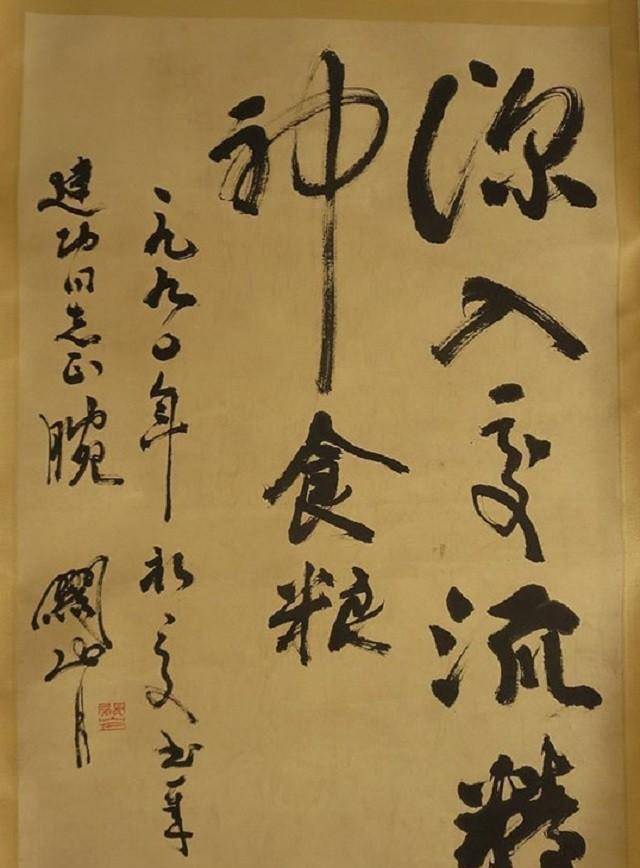 深入交流精
神食粮
一九九〇年初夏书
建功同志正腕
關山月